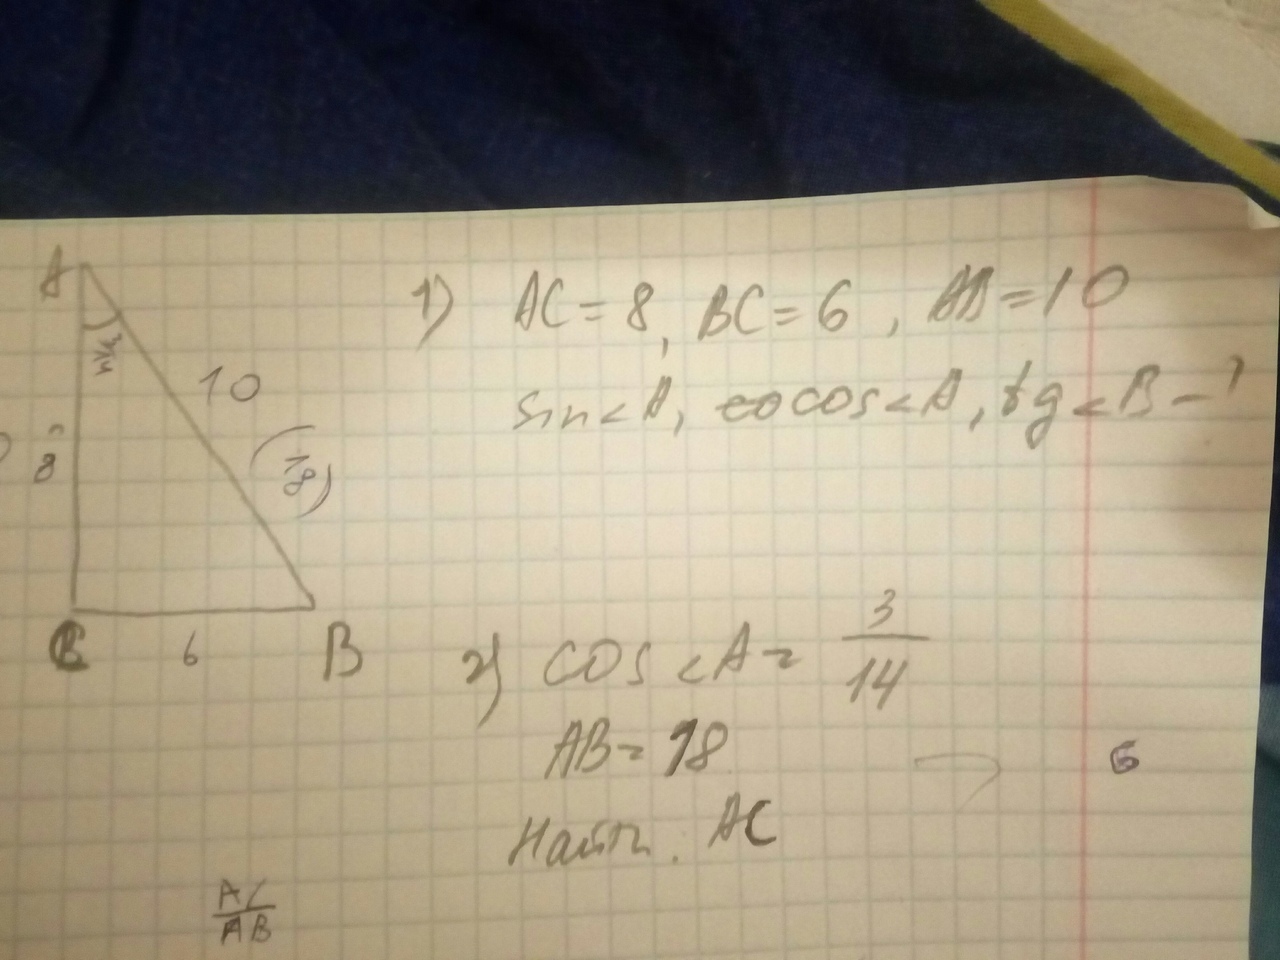 A
10
8
C
6
B
1) AC = 8, BC = 6, AB = 10
sin < A, cos < A, tg < B - ?
2) cos < A = 3/14
AB = 18
Найти: AC
6
AC/AB